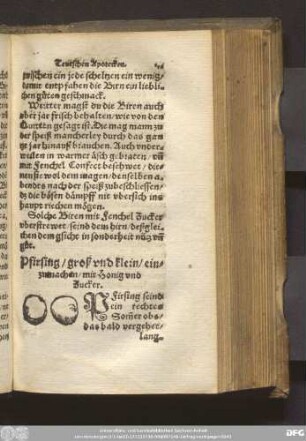 Teutschen Apotecken.
zwischen ein jede scheltzen ein wenig/
somit entpfahen die Birn ein liebli-
chen gůten geschmack.
Weitter magst du die Biren auch
uber jar frisch behalten/ wie von den
Quitten gesagt ist. Die mag mann zu
der speiß mancherley durch das gan
tz jar hinauß brauchen. Auch vnder-
weilen in warmer äsch gebraten/ vñ
mit Fenchel Confect beschwet/ die-
nen sie wol dem magen/ denselben a-
bendts nach der speiß zubeschliessen/
dz die bösen dämpff nit vbersich ins
haupt riechen mögen.
Solche Biren mit Fenchel Zucker
vberstrewet/ seind dem hirn/ deßglei-
chen dem gsicht in sonderheit nütz vñ
gůt.
Pfirsing/ groß vnd klein/ ein-
zumachen/ mit Honig vnd
Zucker.
PFirsing seind
ein rechtes
Som̃er obs/
das bald vergehet/
lang-